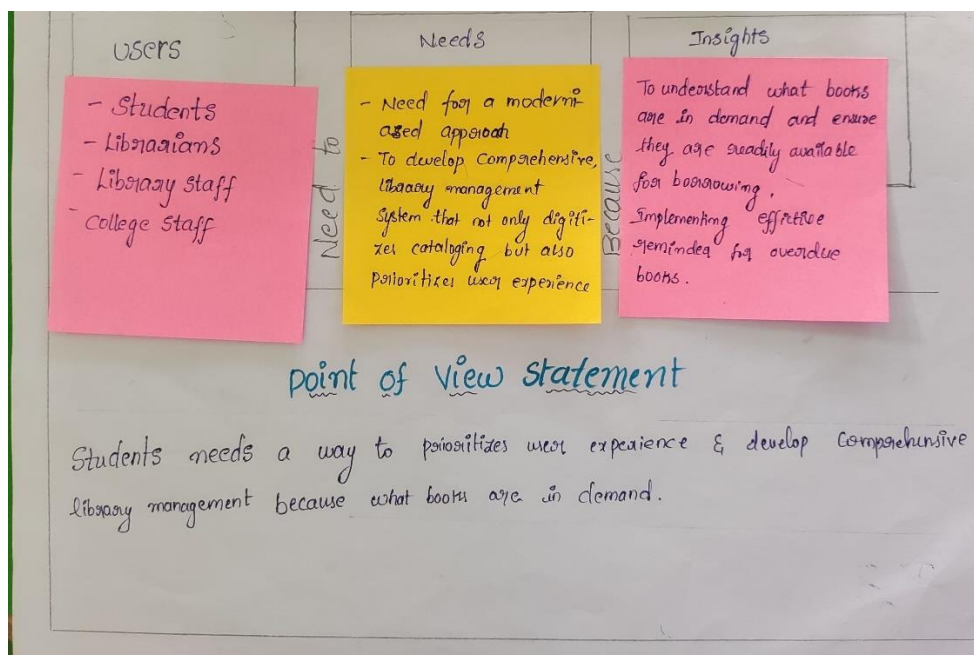 Users
- Students
- Librarians
- Library staff
- College staff
Need to
Needs
- Need for a moderni-
zed approah
- To develop Comprehensive,
library management
System that not only digiti-
zes cataloging but also
prioritizes user experience
Because
Insights
To understand what books
are in demand and ensure
they are readily available
for borrowing.
Implementing effictive
reminder for overdue
books.
point of view statement
Students needs a way to prioritizes user experience & develop Comprehensive
library management because what books are in demand.